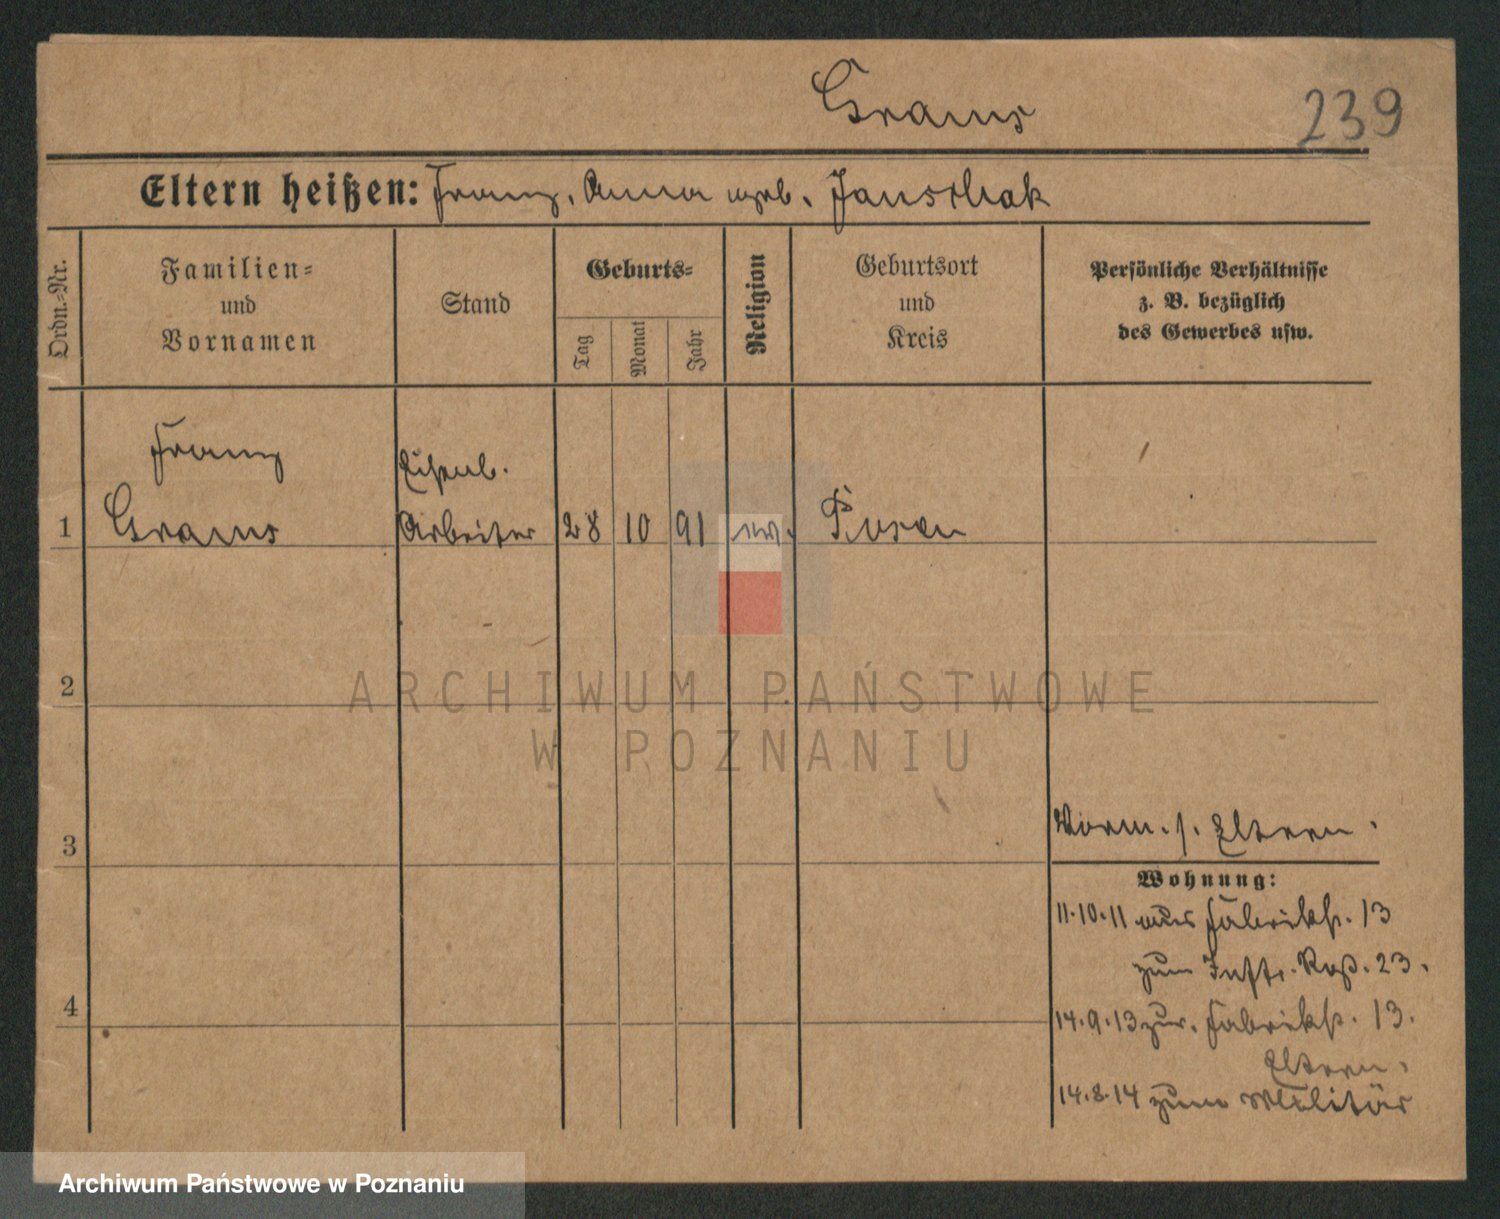 Grams
239
Eltern heißen: Franz, Anna geb. Janschak
Ordn.-Nr.
Familien-
und
Vornamen
Stand
Geburts-
Tag
Monat
Jahr
Religion
Geburtsort
und
Kreis
Persönliche Verhältnisse
z. B. bezüglich
des Gewerbes usw.
1
Franz
Grams
Eisenb.
Arbeiter
28
10
91
Posen
2
ARCHIWUM PAŃSTWOWE
W POZNANIU
3
Vorm. s. Eltern.
Wohnung:
11.10.11 aus Fabrikstr. 13
zum Inftr. Rgt. 23.
4
14.9.13 zur. Fabrikstr. 13.
Eltern.
14.8.14 zum Militär
Archiwum Państwowe w Poznaniu